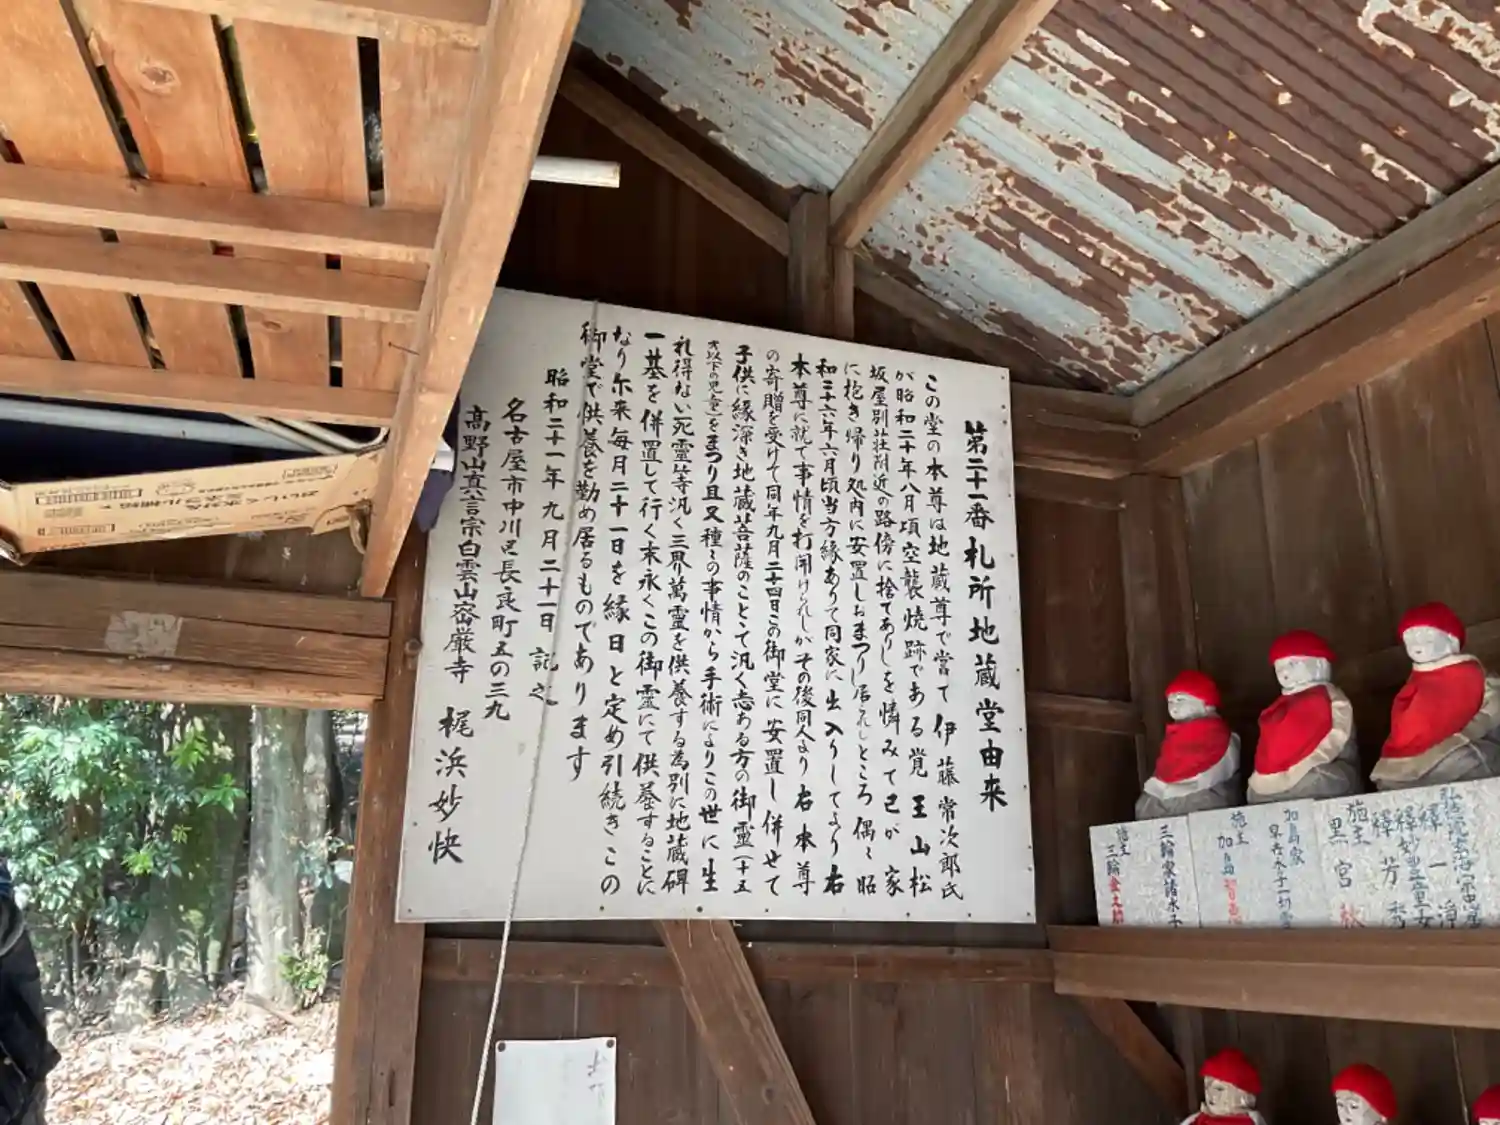 第二十一番札所地蔵堂由来
この堂の本尊は地蔵尊で嘗て伊藤常次郎氏
が昭和二十年八月頃空襲焼跡である覚王山松
坂屋別荘附近の路傍に捨てありしを憐みて己が家
に抱き帰り処内に安置しおまつりし居られしところ偶々昭
和三十六年六月頃当方縁ありて同家に出入りしてより右
本尊に就て事情を打開けられしがその後同人より右本尊
の寄贈を受けて同年九月二十四日この御堂に安置し併せて
子供に縁深き地蔵菩薩のことて汎く志ある方の御霊(十五
才以下の児童)をまつり且又種々の事情から手術によりこの世に生
れ得ない死霊等汎く三界萬霊を供養する為別に地蔵碑
一基を併置して行く末永くこの御霊にて供養することに
なり尓来毎月二十一日を縁日と定め引続きこの
御堂で供養を勤め居るものであります
昭和二十一年九月二十一日 記之
名古屋市中川区長良町五の三九
高野山真言宗白雲山密厳寺 梶浜妙快
加島家
早世水子一切霊
施主
加島
三輪家諸水子
施主
三輪
施主
黒宮
釋芳秀
釋妙豊童女
釋一淳